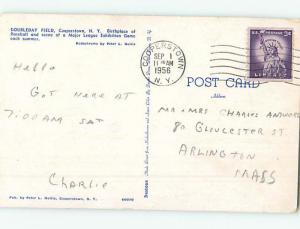 DOUBLEDAY FIELD, Cooperstown, N. Y. Birthplace of
Baseball and scene of a Major League Exhibition Game
each summer.
Kodachrome by Peter L. Hollis
COOPERSTOWN
SEP 1
11 AM
1956
N.Y.
U.S. POSTAGE 3¢
LIBERTY
POST CARD
Hello
Got here at
7:00 AM SAT
Charlie
Mr & Mrs Charles
80 Gloucester St
Arlington
Mass
Pub. by Peter L. Hollis, Cooperstown, N. Y.